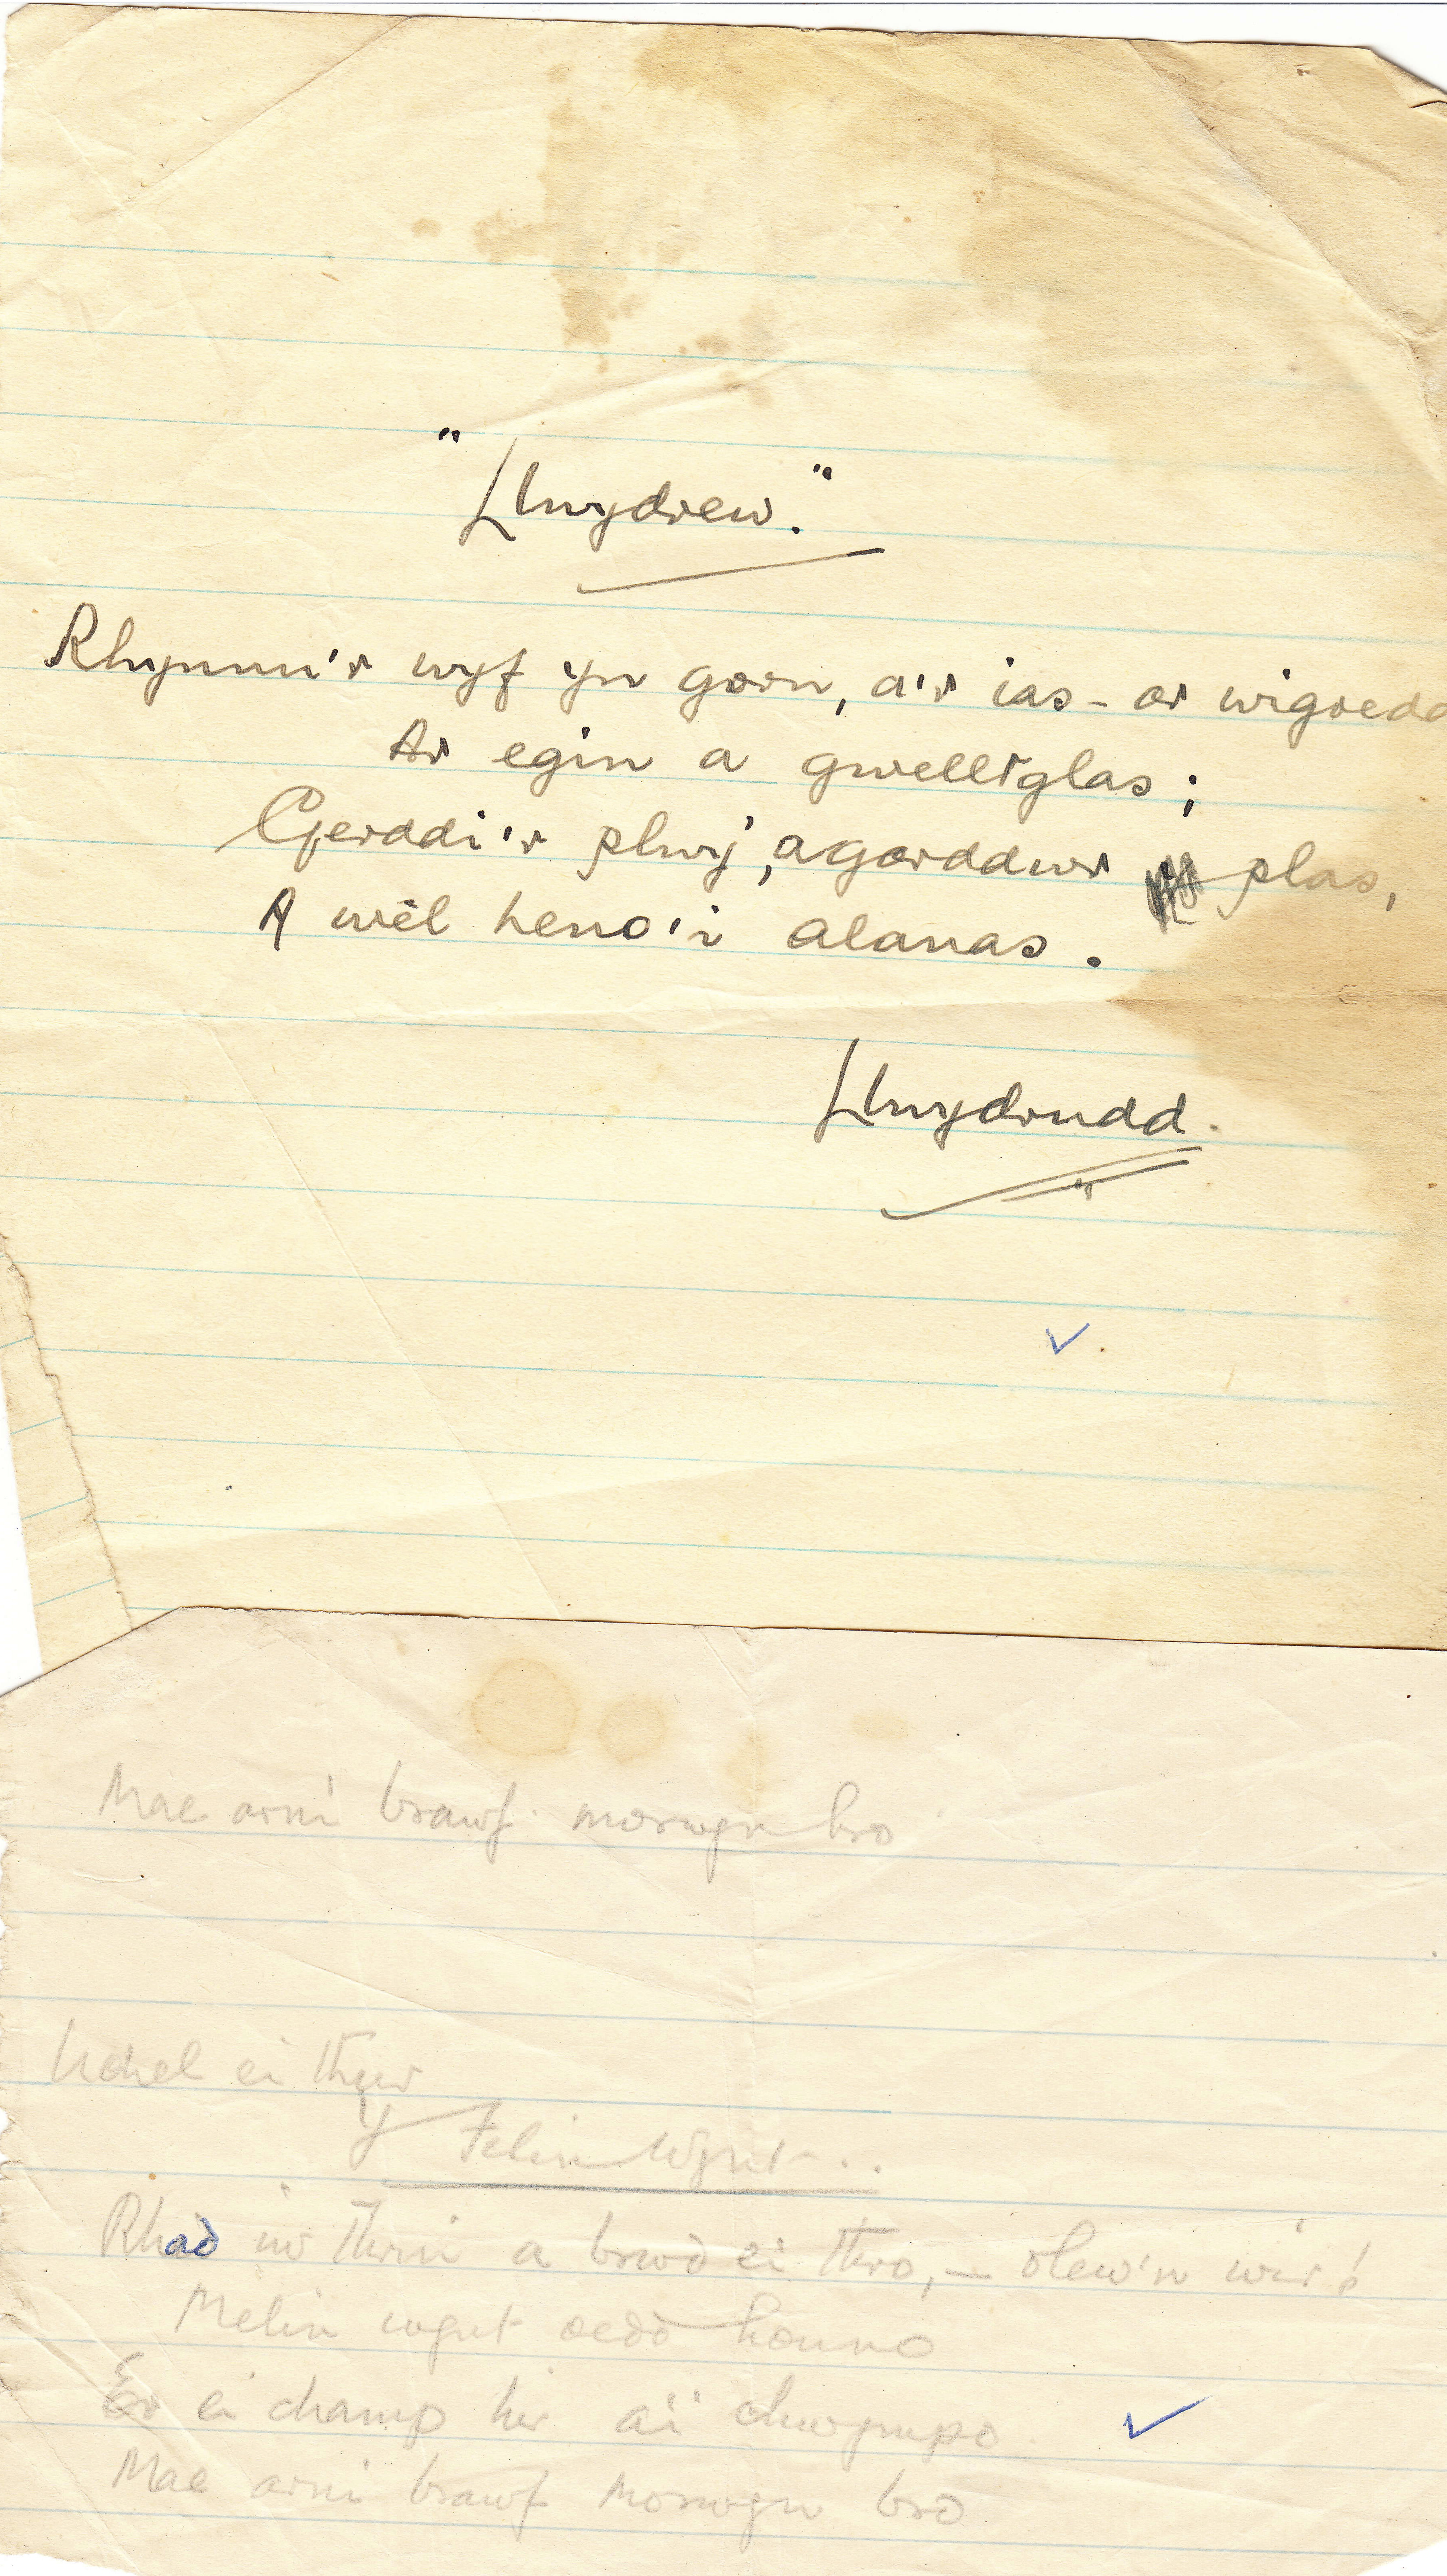 "Llwydrew."
Rhynnu'r wyf yn gorn, a'r ias - ar wigoedd
Ar egin a gwelltglas;
Gerddi'r plwy', a garddwr plas,
A wêl heno'i alanas.
Llwydrudd.
Mae arni brawf morwyn bro
Uchel ei thwr
Y Felin Wynt..
Rhad iw thrin a brwd ei thro, – olew'n wir!
Melin wynt oedd honno
Er ei champ hir a'i chwympo
Mae arni brawf morwyn bro